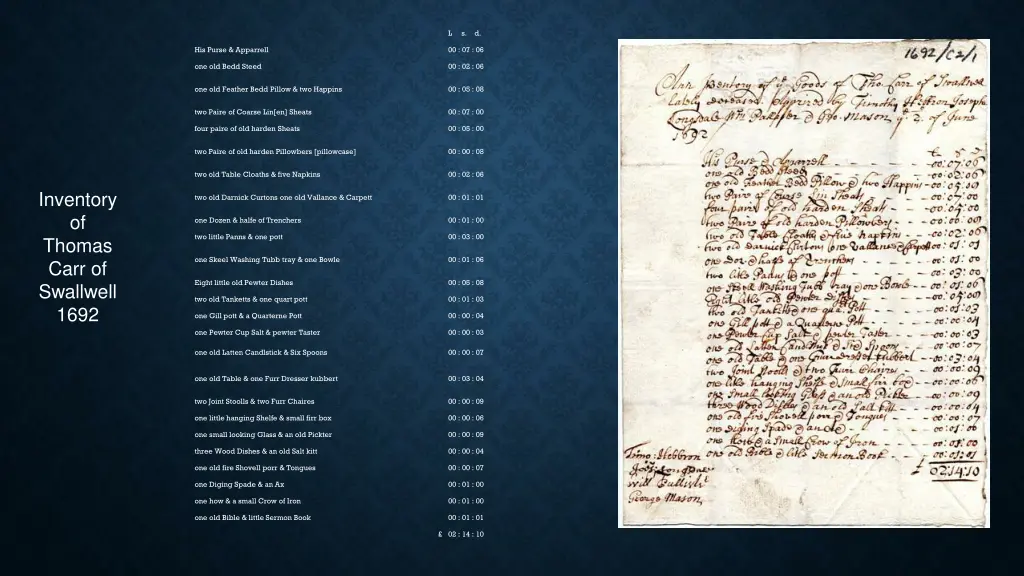 Inventory
of
Thomas
Carr of
Swallwell
1692
L s. d.
His Purse & Apparrell 00 : 07 : 06
one old Bedd Steed 00 : 02 : 06
one old Feather Bedd Pillow & two Happins 00 : 05 : 08
two Paire of Coarse Lin[en] Sheats 00 : 07 : 00
four paire of old harden Sheats 00 : 05 : 00
two Paire of old harden Pillowbers [pillowcase] 00 : 00 : 08
two old Table Cloaths & five Napkins 00 : 02 : 06
two old Darnick Curtons one old Vallance & Carpett 00 : 01 : 01
one Dozen & halfe of Trenchers 00 : 01 : 00
two little Panns & one pott 00 : 03 : 00
one Skeel Washing Tubb tray & one Bowle 00 : 01 : 06
Eight little old Pewter Dishes 00 : 05 : 08
two old Tanketts & one quart pott 00 : 01 : 03
one Gill pott & a Quarterne Pott 00 : 00 : 04
one Pewter Cup Salt & pewter Taster 00 : 00 : 03
one old Latten Candlstick & Six Spoons 00 : 00 : 07
one old Table & one Furr Dresser kubbert 00 : 03 : 04
two Joint Stoolls & two Furr Chaires 00 : 00 : 09
one little hanging Shelfe & small firr box 00 : 00 : 06
one small looking Glass & an old Pickter 00 : 00 : 09
three Wood Dishes & an old Salt kitt 00 : 00 : 04
one old fire Shovell porr & Tongues 00 : 00 : 07
one Diging Spade & an Ax 00 : 01 : 00
one how & a small Crow of Iron 00 : 01 : 00
one old Bible & little Sermon Book 00 : 01 : 01
£ 02 : 14 : 10
1692/C2/1
Goods of Tho: Carr of
by Timothy
Mason of June
1692
His Purse & Apparrell 00:07:06
one old Bedd Steed 00:02:06
one old Feather Bedd Pillow & two Happins
two Paire of Course Lin Sheats
four paire of old harden Sheats 00:05:00
two Paire of old harden Pillowbers
two old Table Cloaths & five Napkins 00:02:06
two old Darnick Curtons one Vallance & Carpett 00:01:01
one doz & halfe of Trenchers 00:01:00
two litle Panns & one pott 00:03:00
one Skeel Washing Tubb tray & one Bowle 00:01:06
Eight litle old Pewter
two old Tanketts & one Pott 00:01:03
one Gill pott & a Quarterne Pott 00:00:04
one Pewter Cup Salt & pewter Taster 00:00:03
one old Latten Candlstick & Six Spoons 00:00:07
one old Table & one Furr dresser kubbert 00:03:04
two Joint Stoolls & two Furr Chaires 00:00:09
one litle hanging Shelfe & small firr box 00:00:06
one small looking Glass & an old Pickter 00:00:09
three Wood Dishes & an old Salt kitt 00:00:04
one old fire Shovell porr & Tongues 00:00:07
one diging Spade & an Ax 00:01:00
one how & a small Crow of Iron
one old Bible & litle Sermon Book 00:01:01
£ 02:14:10
Will
George Mason